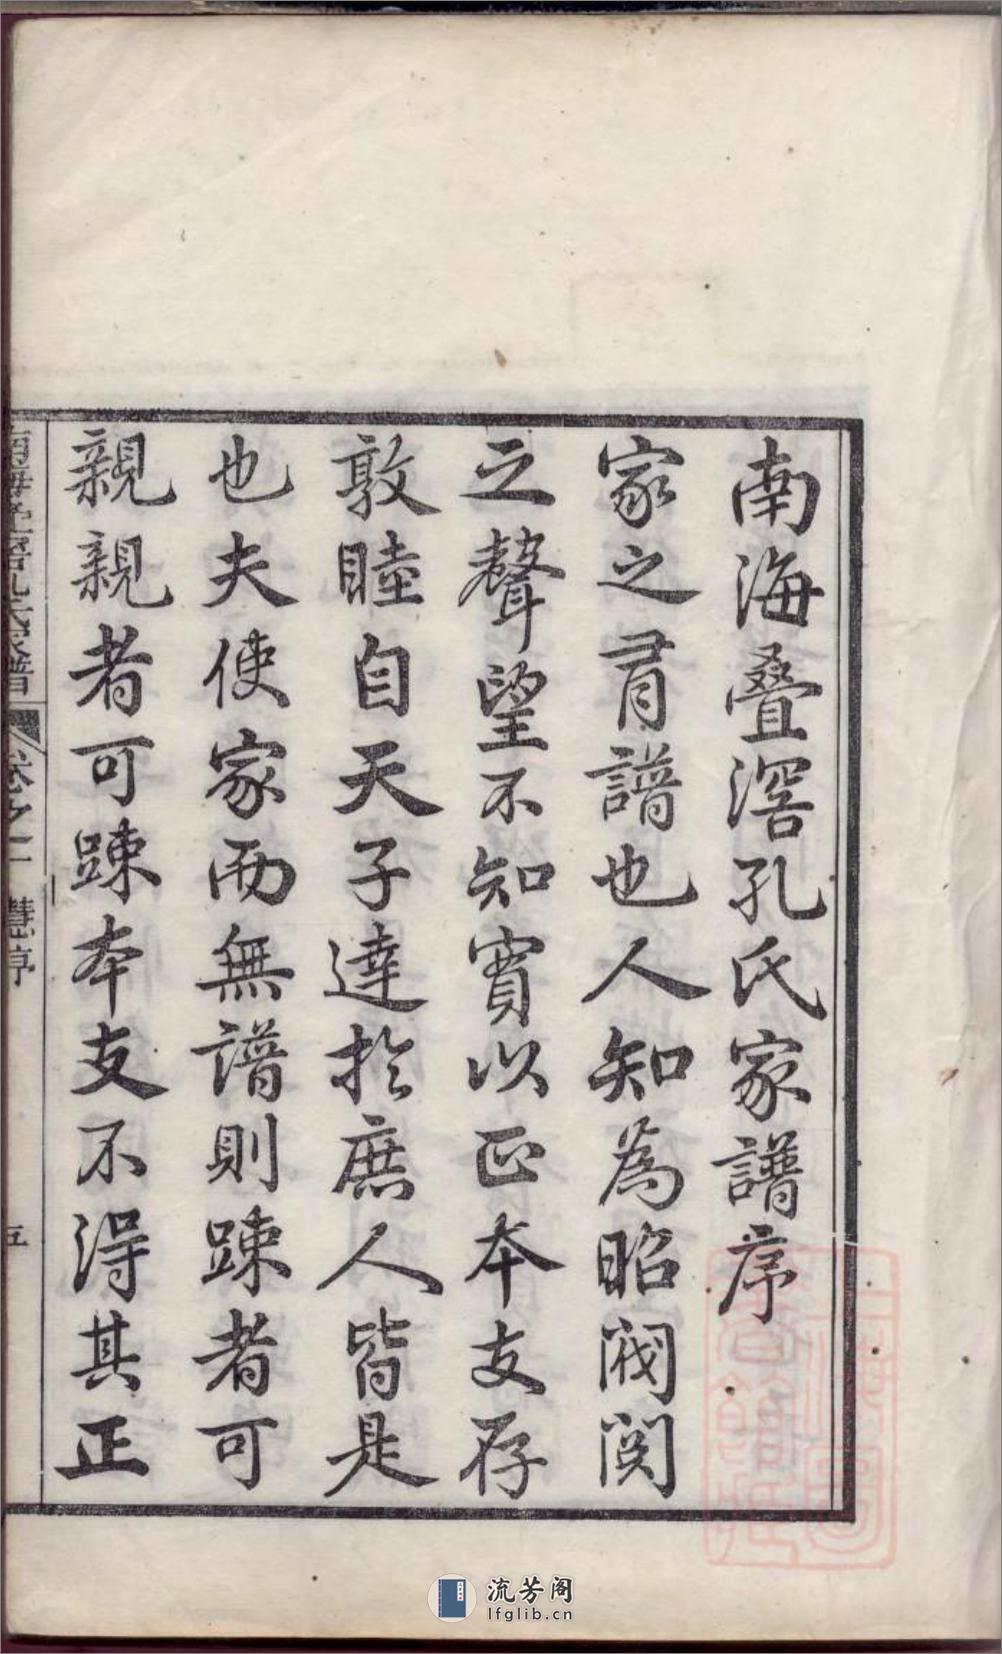 南海疊滘孔氏家譜序
家之有譜也人知為昭閥閱
之聲望不知實以正本支存
敦睦自天子達於庶人皆是
也夫使家而無譜則踈者可
親親者可踈本支不得其正
南海疊滘孔氏家譜 卷之一 五
流芳阁
lfglib.cn